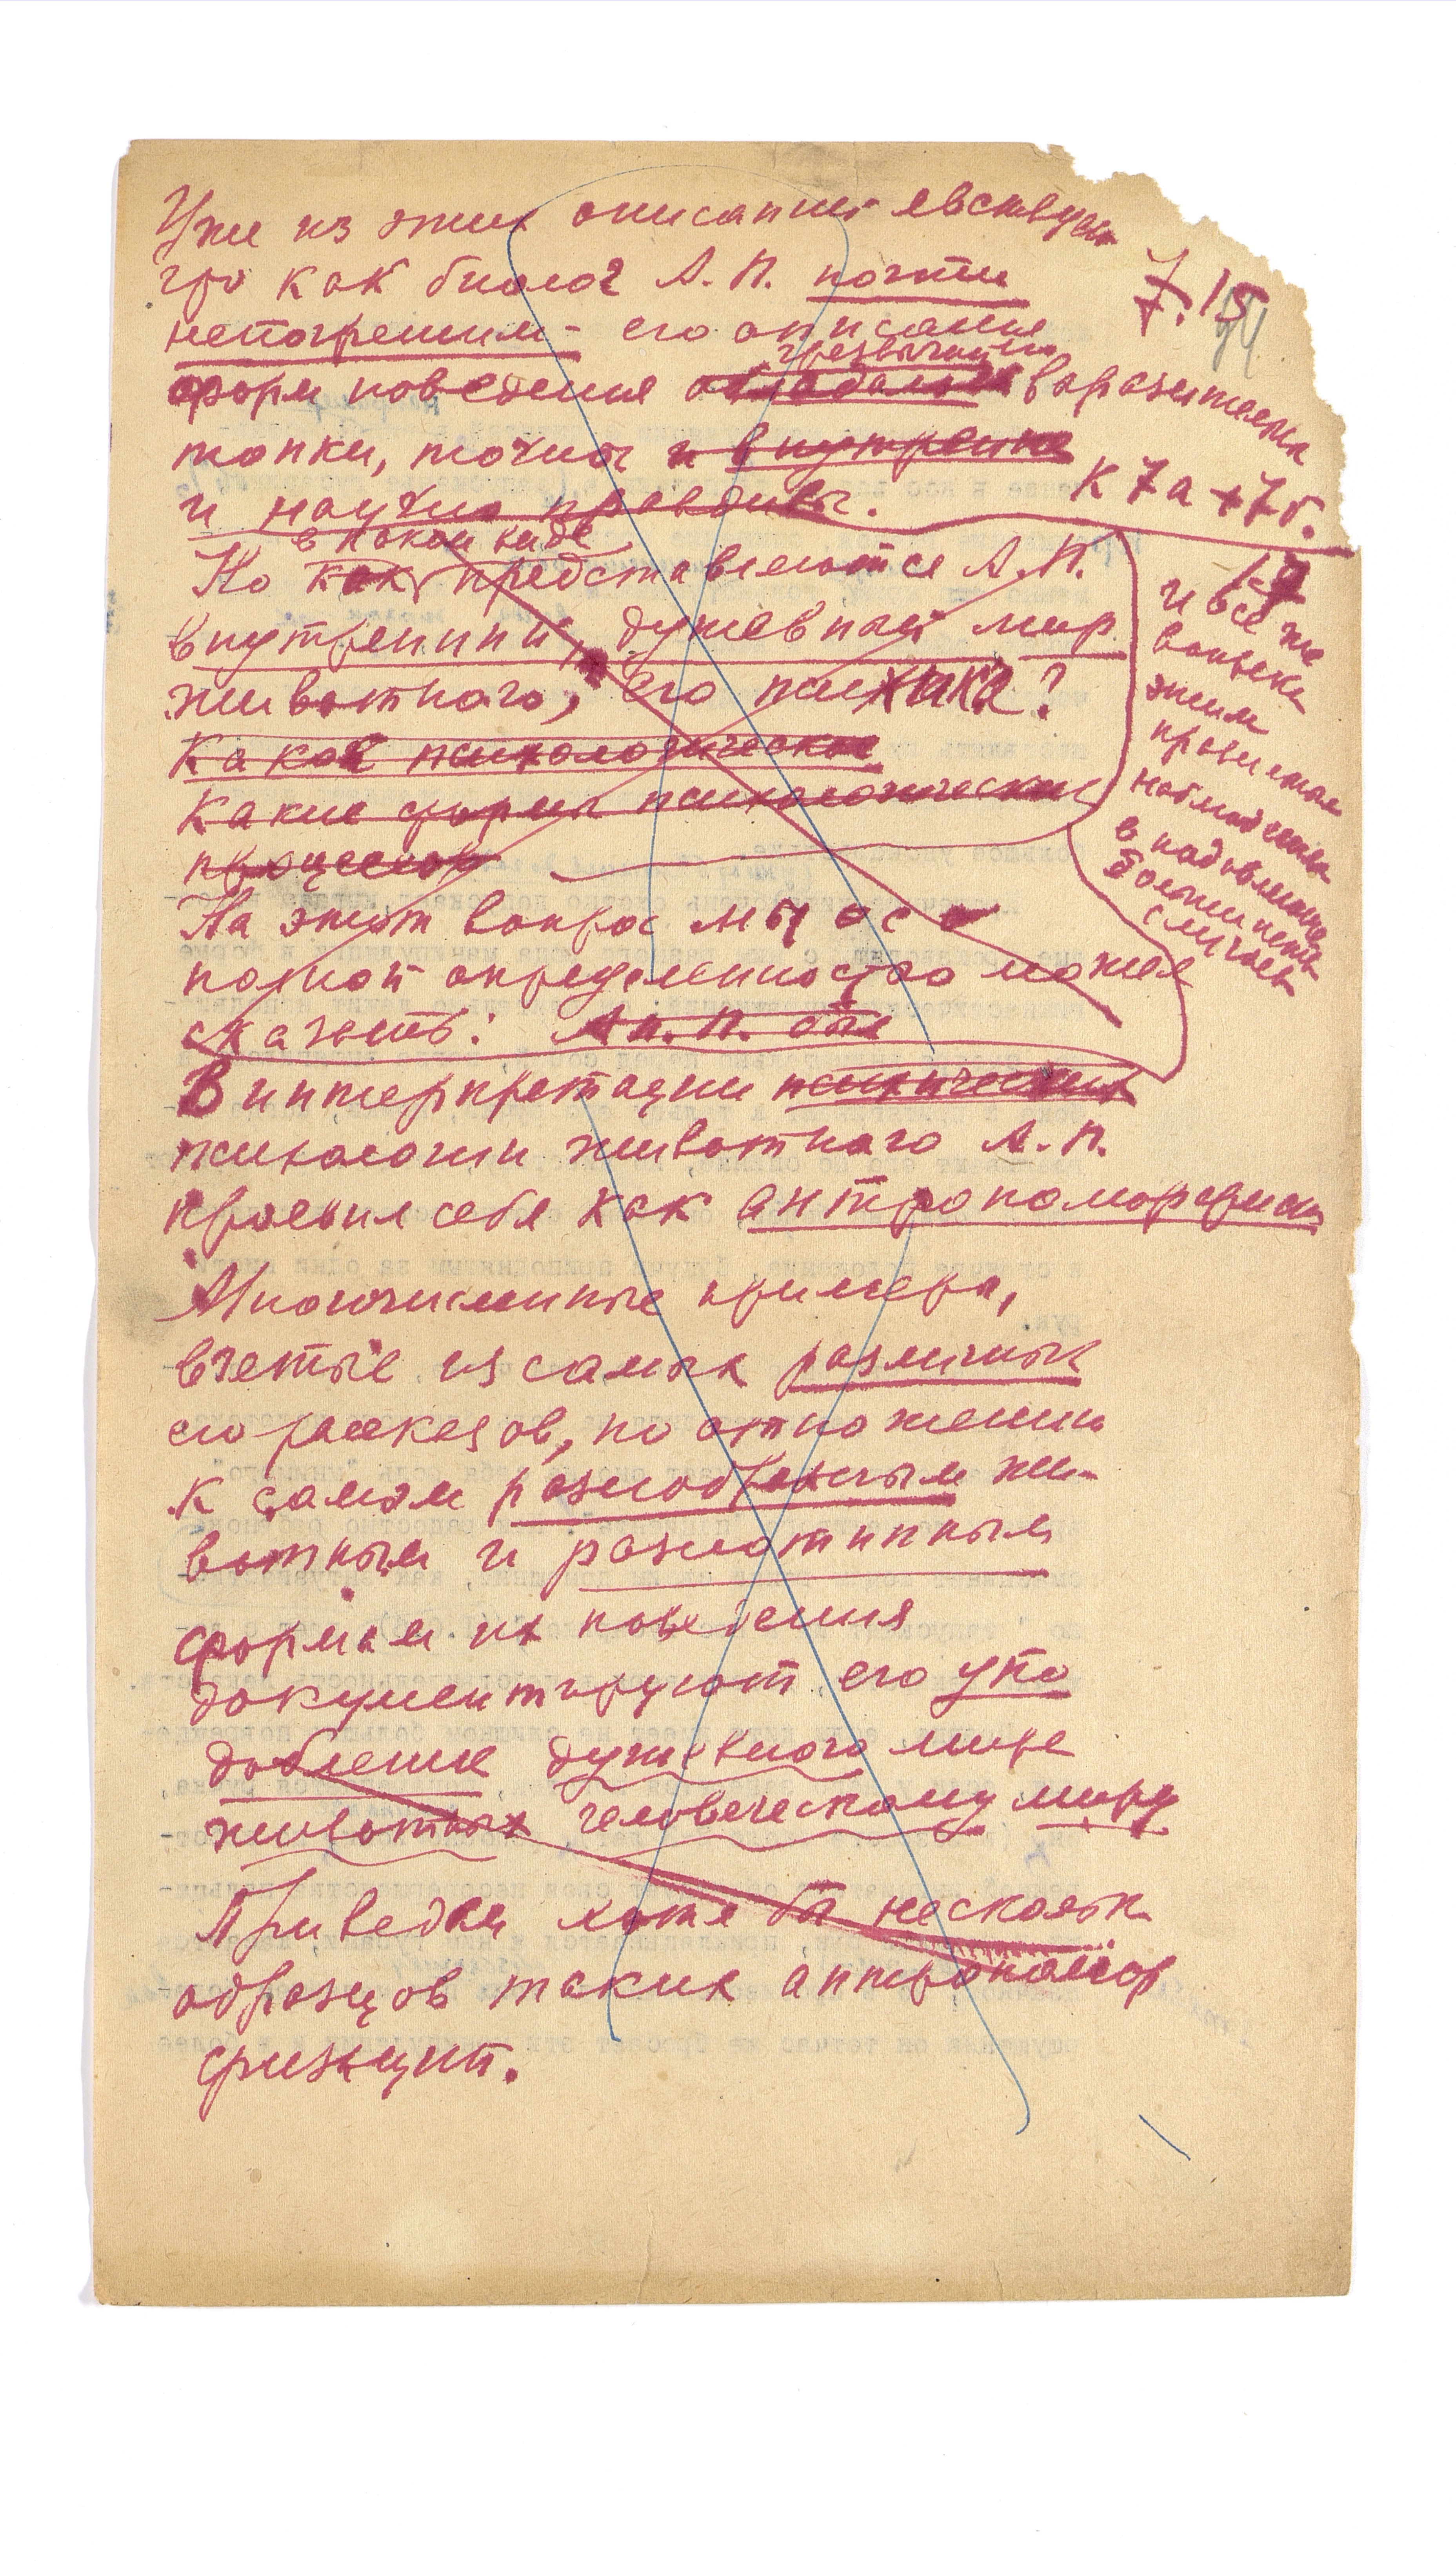 Уже из этих описаний явствует
что как биолог А.П. почти
7.15
94
непогрешим - его описания
чрезвычайно
форм поведения выразительны
тонки, точны и внутренне
и научно правдивы.
К 7а + 7б.
в каком виде
Но как представляются А.П.
внутренний, душевный мир
животного, его психика?
Какое психологическое
Какие формы психологических
процессов
На этот вопрос мы со
полной определенностью может
сказать: А.П. 
В интерпретации психических
психологии животного А.П.
проявил себя как антропоморфист
17
и все же
вопреки
этим
прогнозам
наблюдения
в подавляющем
большинстве
случаев
Многочисленные примеры,
взятые из самых различных
его рассказов, по отношению
к самым разнообразным жи-
вотным и разнотипным
формам их поведения
документируют его упо
добление душевного мира
животных человеческому миру
Приведем хотя бы несколько
образцов таких антропомор
физаций.